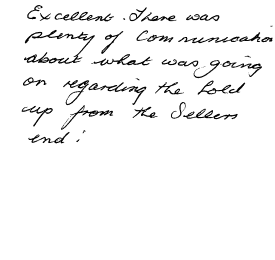 Excellent. There was
plenty of Communication
about what was going
on regarding the hold
up from the Sellers
end!